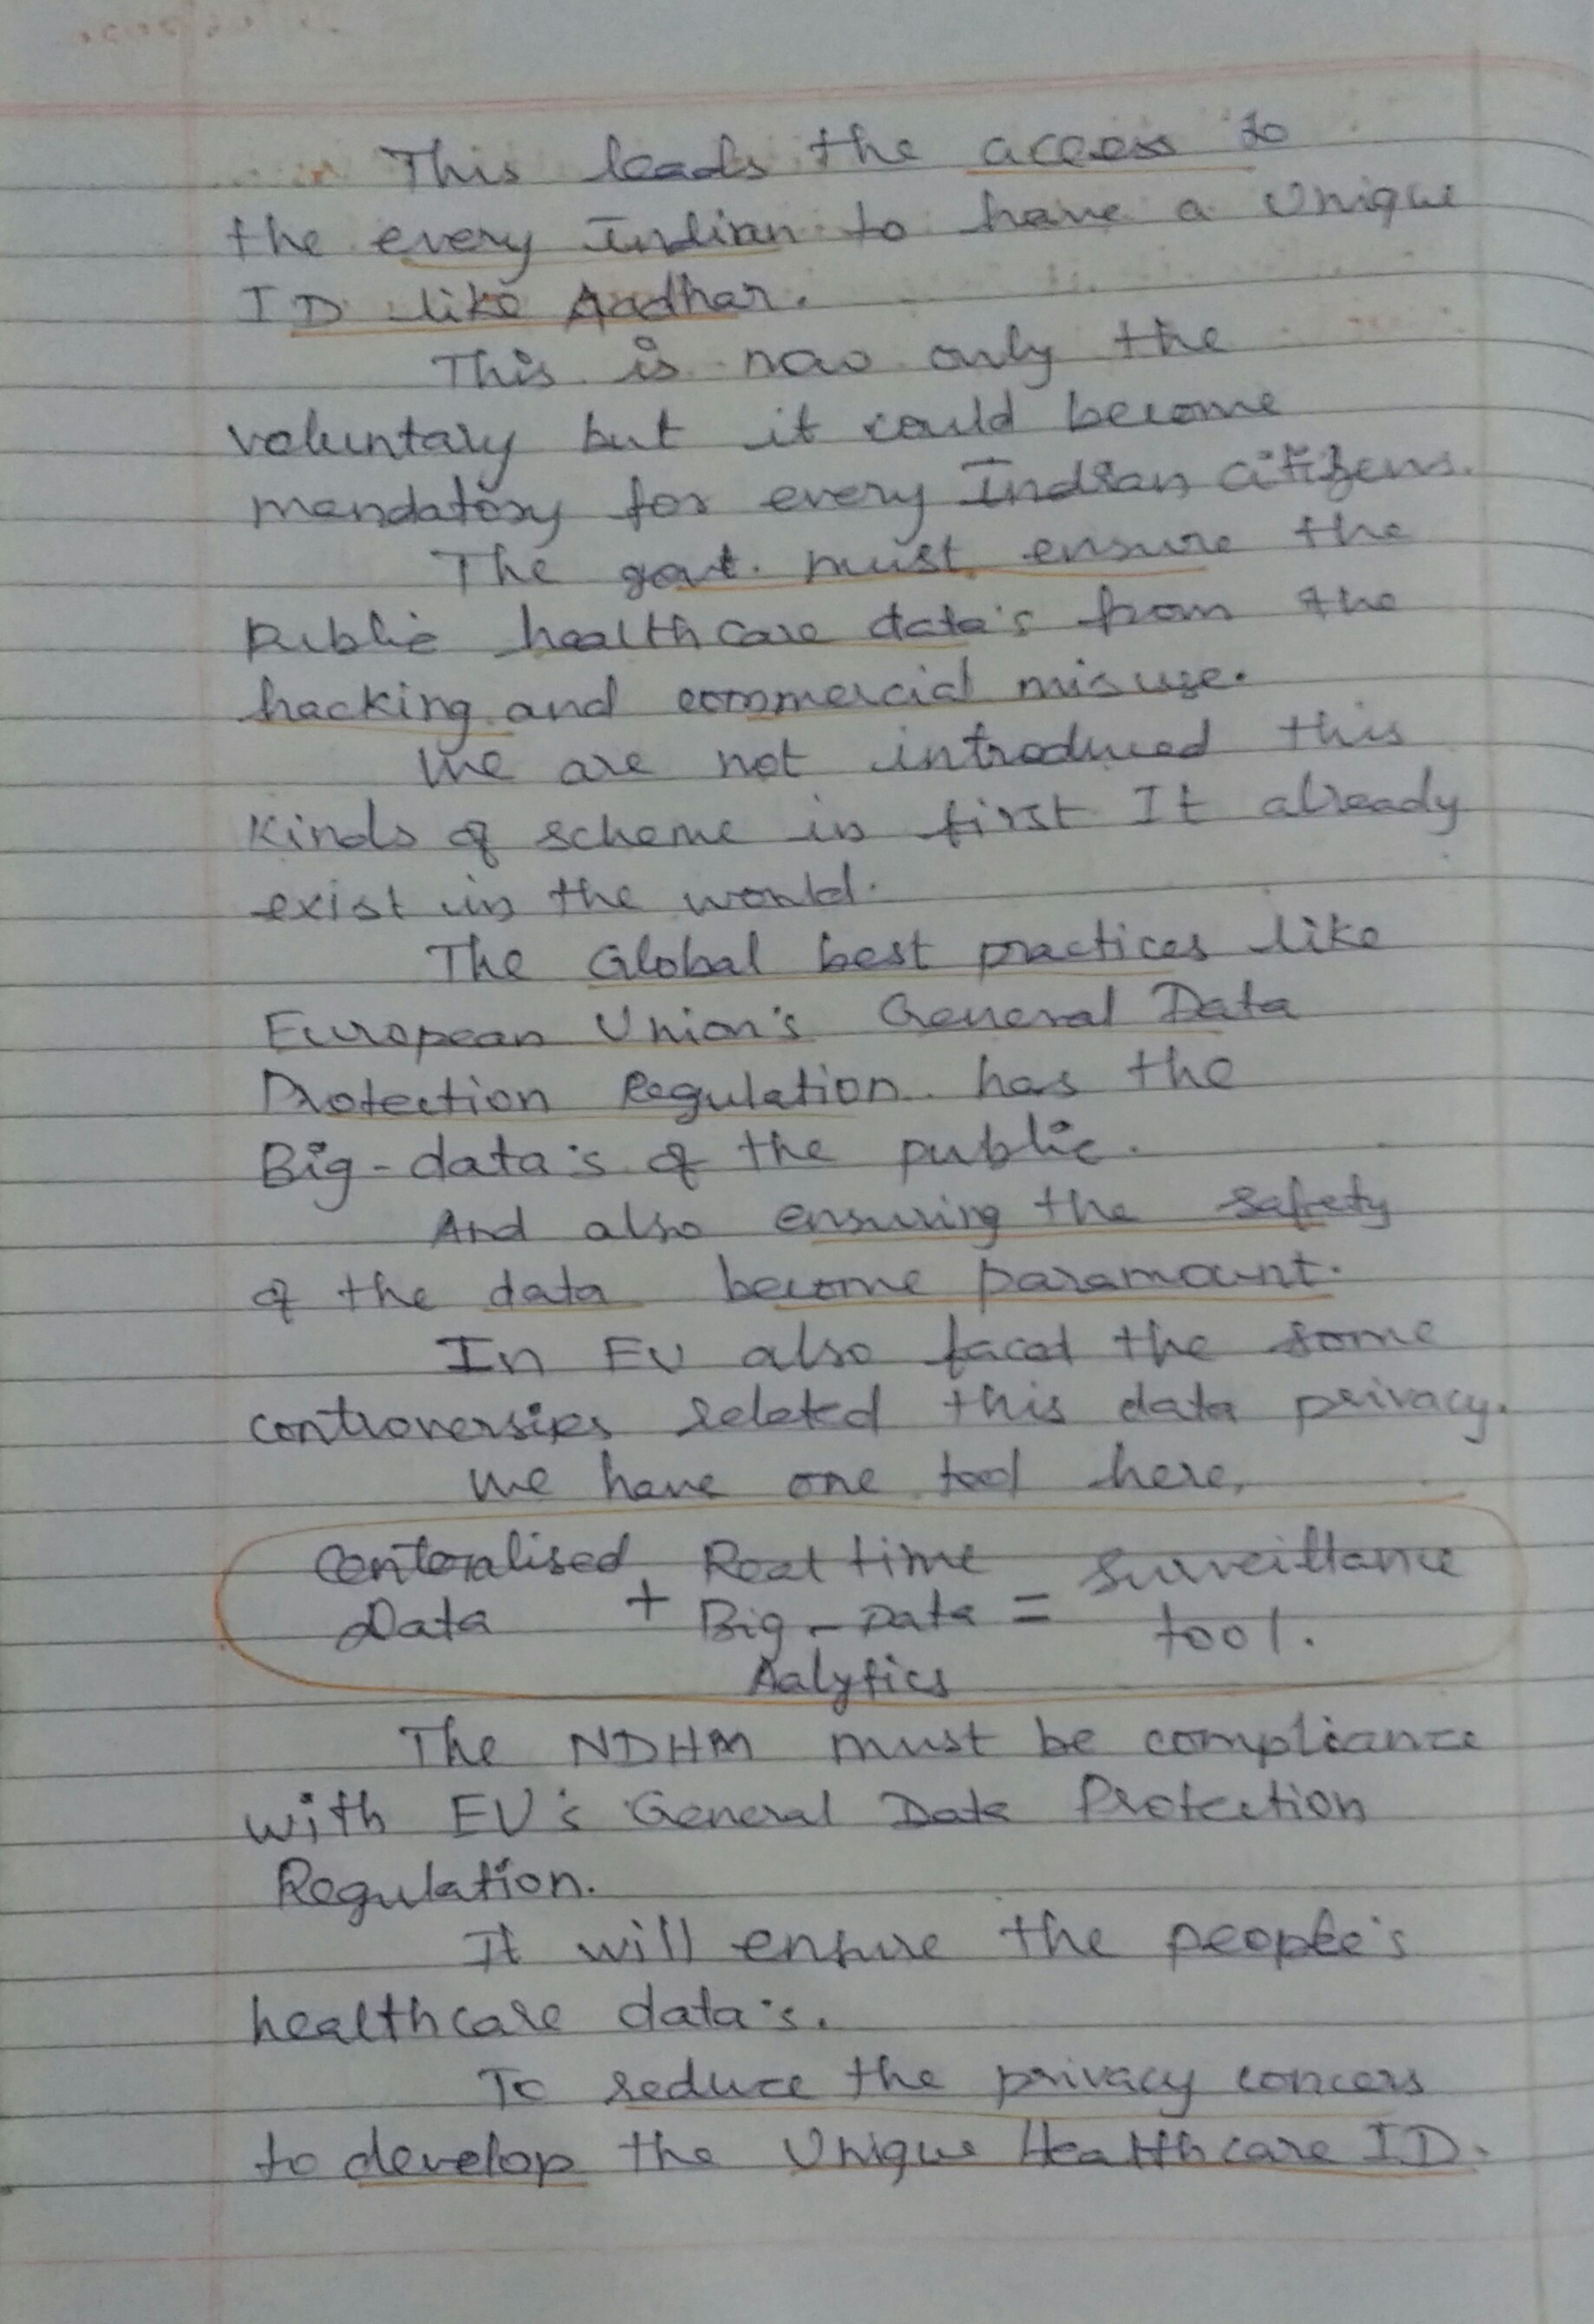 This leads the access to
the every Indian to have a Unique
ID like Aadhar.
This is now only the
voluntary but it could become
mandatory for every Indian citizens.
The govt. must ensure the
Public healthcare data's from the
hacking and commercial misuse.
We are not introduced this
Kinds of scheme in first It already
exist in the world.
The Global best practices like
European Union's General Data
Protection Regulation has the
Big-data's of the public.
And also ensuring the safety
of the data become paramount.
In EU also faced the some
controversies related this data privacy.
We have one tool here,
Centeralised Data + Real time Big-Data Aalytics = Surveillance tool.
The NDHM must be compliance
with EU's General Data Protection
Regulation.
It will ensure the people's
healthcare data's.
To reduce the privacy concers
to develop the Unique Healthcare ID.